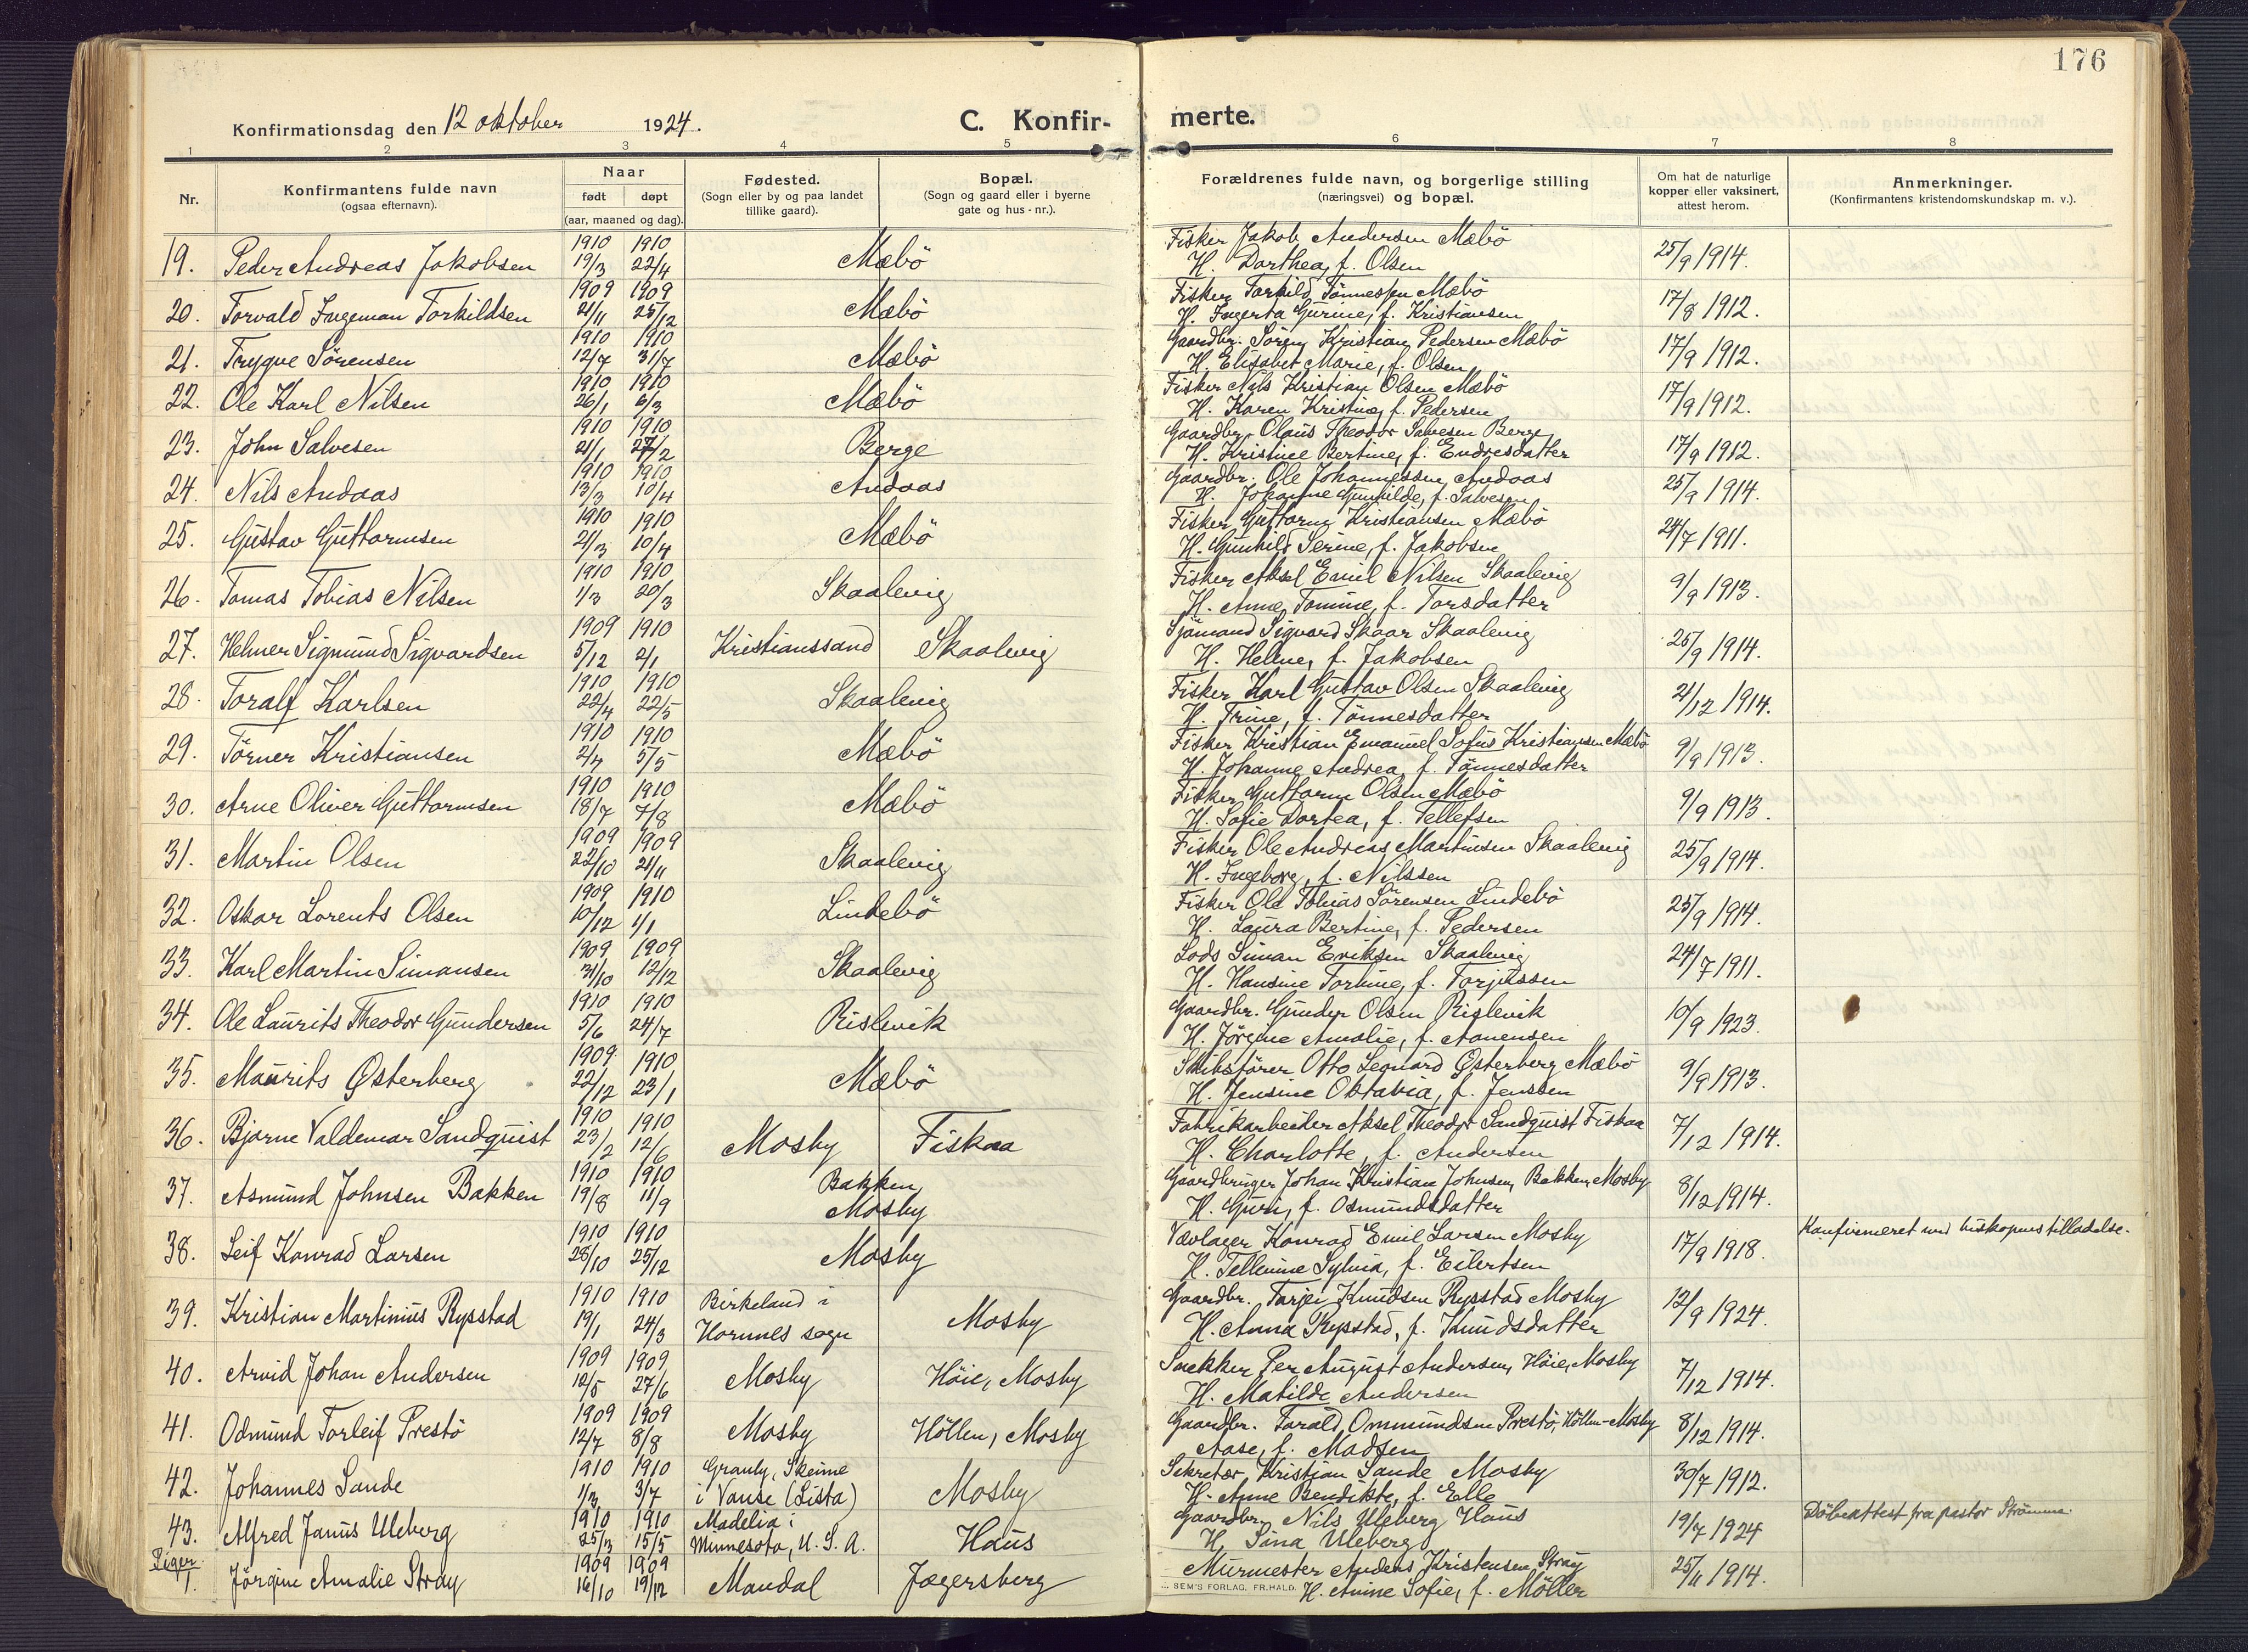 176
Konfirmationsdag den 12 oktober 1924.
C. Konfir- merte.
1 2 3 4 5 6 7 8
Nr.
Konfirmantens fulde navn
(ogsaa efternavn).
Naar
født døpt
(aar, maaned og dag).
Fødested.
(Sogn eller by og paa landet
tillike gaard).
Bopæl.
(Sogn og gaard eller i byerne
gate og hus-nr.).
Forældrenes fulde navn, og borgerlige stilling
(næringsvei) og bopæl.
Om hat de naturlige
kopper eller vaksinert,
attest herom.
Anmerkninger.
(Konfirmantens kristendomskundskap m. v.).
1910 1910 Fisker Jakob Andersen Mæbö
19. Peder Andreas Jakobsen 19/3 22/4 Mæbö H. Dorthea, f. Olsen 25/9 1914.
1909 1909 Fisker Torkild Tönnessen Mæbö
20. Torvald Ingeman Torkildsen 21/11 25/12 Mæbö H. Ingerta Gurine, f. Kristiansen 17/8 1912.
1910 1910 Gaardbr. Sören Kristian Pedersen Mæbö
21. Trygve Sörensen 12/7 31/7 Mæbö H. Elisabet Marie, f. Olsen 17/9 1912.
1910 1910 Fisker Nils Kristian Olsen Mæbö
22. Ole Karl Nilsen 26/1 6/3 Mæbö H. Karen Kristine, f. Pedersen 17/9 1912.
1910 1910 Gaardbr. Olaus Theodor Salvesen Berge
23. John Salvesen 21/1 27/2 Berge H. Kristine Bertine, f. Endresdatter 17/9 1912.
1910 1910 Gaardbr. Ole Johannessen Andaas
24. Nils Andaas 13/3 10/4 Andaas H. Johanne Gunhilde, f. Salvesen 25/9 1914.
1910 1910 Fisker Guttorm Kristiansen Mæbö
25. Gustav Guttormsen 21/3 10/4 Mæbö H. Gunhild Serine, f. Jakobsen 24/7 1911.
1910 1910 Fisker Aksel Emil Nilsen Skaalevig
26. Tomas Tobias Nilsen 1/3 20/3 Skaalevig H. Anne Tomine, f. Torsdatter 9/9 1913.
1909 1910 Sjömand Sigvard Skaar Skaalevig
27. Helmer Sigmund Sigvardsen 5/12 2/1 Kristianssand Skaalevig H. Helene, f. Jakobsen 25/9 1914.
1910 1910 Fisker Karl Gustav Olsen Skaalevig
28. Toralf Karlsen 22/4 22/5 Skaalevig H. Trine, f. Tönnesdatter 21/12 1914.
1910 1910 Fisker Kristian Emanuel Sofus Kristiansen Mæbö
29. Törner Kristiansen 2/4 5/5 Mæbö H. Johanne Andrea, f. Tönnesdatter 9/9 1913.
1910 1910 Fisker Guttorm Olsen Mæbö
30. Arne Oliver Guttormsen 18/7 7/8 Mæbö H. Sofie Dortea, f. Tellefsen 9/9 1913.
1909 1909 Fisker Ole Andreas Martinsen Skaalevig
31. Martin Olsen 22/10 21/11 Skaalevig H. Ingeborg, f. Nilssen 25/9 1914.
1909 1910 Fisker Ole Tobias Sörensen Lindebö
32. Oskar Lorents Olsen 10/12 1/1 Lindebö H. Laura Bertine, f. Pedersen 25/9 1914.
1909 1909 Lods Siman Eriksen Skaalevig
33. Karl Martin Simansen 31/10 12/12 Skaalevig H. Hansine Torline, f. Torjussen 24/7 1911.
1910 1910 Gaardbr. Gunder Olsen Rislevik
34. Ole Laurits Theodor Gundersen 5/6 24/7 Rislevik H. Jörgine Amalie, f. Aanensen 10/9 1923.
1909 1910 Skibsförer Otto Leonard Østerberg Mæbö
35. Maurits Østerberg 22/12 23/1 Mæbö H. Jensine Oktavia, f. Jenssen 9/9 1913.
1910 1910 Fabrikarbeider Aksel Theodor Sandquist Fiskaa
36. Bjarne Valdemar Sandquist 23/2 12/6 Mosby Fiskaa H. Charlotte, f. Andersen 7/12 1914.
1910 1910 Bakken, Gaardbruger Johan Kristian Johnsen, Bakken, Mosby
37. Asmund Johnsen Bakken 19/8 11/9 Mosby H. Guri, f. Osmundsdatter 8/12 1914.
1910 1910 Konrad Emil Larsen Mosby Konfirmeret med biskopens tilladelse.
38. Leif Konrad Larsen 28/10 25/12 Mosby H. Tellemine Sylvia, f. Eilertsen 17/9 1918.
1910 1910 Birkeland i Gaardbr. Tarjei Knudsen Rysstad Mosby
39. Kristian Martinius Rysstad 19/1 24/3 Hornnes sogn Mosby H. Anna Rysstad, f. Knudsdatter 12/9 1924.
1909 1909 Snekker Per August Andersen, Höie, Mosby
40. Arvid Johan Andersen 12/5 27/6 Mosby Höie, Mosby H. Matilde Andersen 7/12 1914.
1909 1909 Gaardbr. Torald Ommundsen Prestö, Höllen-Mosby
41. Odmund Torleif Prestö 12/7 8/8 Mosby Höllen, Mosby Aase, f. Madsen 8/12 1914.
1910 1910 Granly, Skeime Sekretær Kristian Sande Mosby
42. Johannes Sande 1/3 3/7 i Vanse (Lista) Mosby H. Anne Bendikte, f. Elle 30/7 1912.
1910 1910 Madelia i Gaardbr. Nils Uleberg Haus Döbeattest fra pastor Strömme.
43. Alfred Janus Uleberg 25/3 15/5 Minnesota, U. S. A. Haus H. Sina Uleberg 19/7 1924
Piger. 1909 1909 Murmester Anders Kristensen Stray
1. Jörgine Amalie Stray 16/10 19/12 Mandal Jægersberg H. Anine Sofie, f. Möller 25/11 1914.
SEM'S FORLAG, FR.HALD.